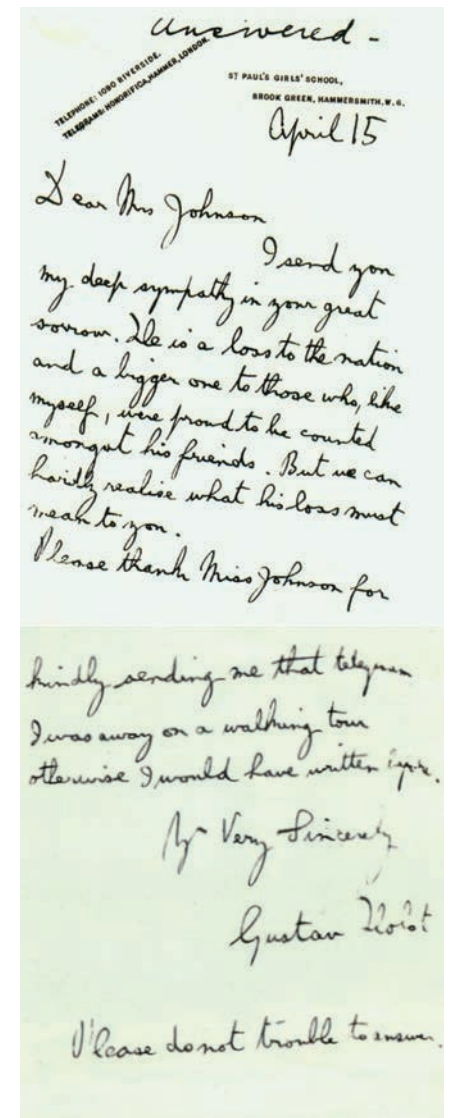 answered -
TELEPHONE: 1080 RIVERSIDE.
TELEGRAMS: HONORIFICA, HAMMER, LONDON.
ST PAUL'S GIRLS' SCHOOL,
BROOK GREEN, HAMMERSMITH, W. 6.
April 15
Dear Mrs Johnson
I send you
my deep sympathy in your great
sorrow. He is a loss to the nation
and a bigger one to those who, like
myself, were proud to be counted
amongst his friends. But we can
hardly realise what his loss must
mean to you.
Please thank Miss Johnson for
kindly sending me that telegram
I was away on a walking tour
otherwise I would have written before.
Yrs Very Sincerely
Gustav Holst
Please do not trouble to answer.